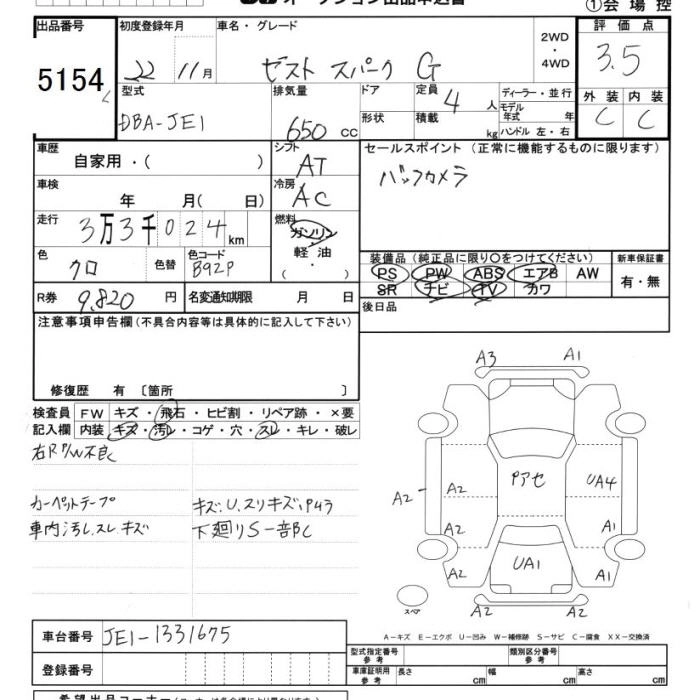 オークション出品申込書
①会場控
出品番号
5154
初度登録年月
22 11月
車名・グレード
ゼスト スパーク G
2WD
・
4WD
評価点
3.5
型式
DBA-JE1
排気量
650 cc
ドア
形状
定員
4 人
積載
kg
ディーラー・並行
モデル年式 年
ハンドル 左・右
外装 内装
C C
車歴
自家用・( )
シフト
AT
セールスポイント(正常に機能するものに限ります)
バックカメラ
車検
年 月( 日)
冷房
AC
走行
3万3千024km
燃料
ガソリン
軽油
( ・ )
色
クロ
色替
色コード
B92P
装備品(純正品に限り○をつけてください)
新車保証書
PS PW ABS エアB AW
SR ナビ TV カワ
有・無
R券
9,820 円
名変通知期限 月 日
後日品
注意事項申告欄(不具合内容等は具体的に記入して下さい)
修復歴 有 〔箇所 〕
検査員
記入欄
FW キズ・飛石・ヒビ割・リペア跡・×要
内装 キズ・汚レ・コゲ・穴・スレ・キレ・破レ
右R P/W不良
カーペットテープ
キズ.U.スリキズ.
車内汚レ.スレ.キズ
下廻りS一部C
A3 A1
A2 A2 Pアセ UA4
A2 A1
A2 UA1 A1
A2 A2
スペア
A-キズ E-エクボ U-凹み W-補修跡 S-サビ C-腐食 XX-交換済
車台番号
JE1-1331675
登録番号
型式指定番号
参考
類別区分番号
参考
車庫証明用
参考
長さ cm
幅 cm
高さ cm